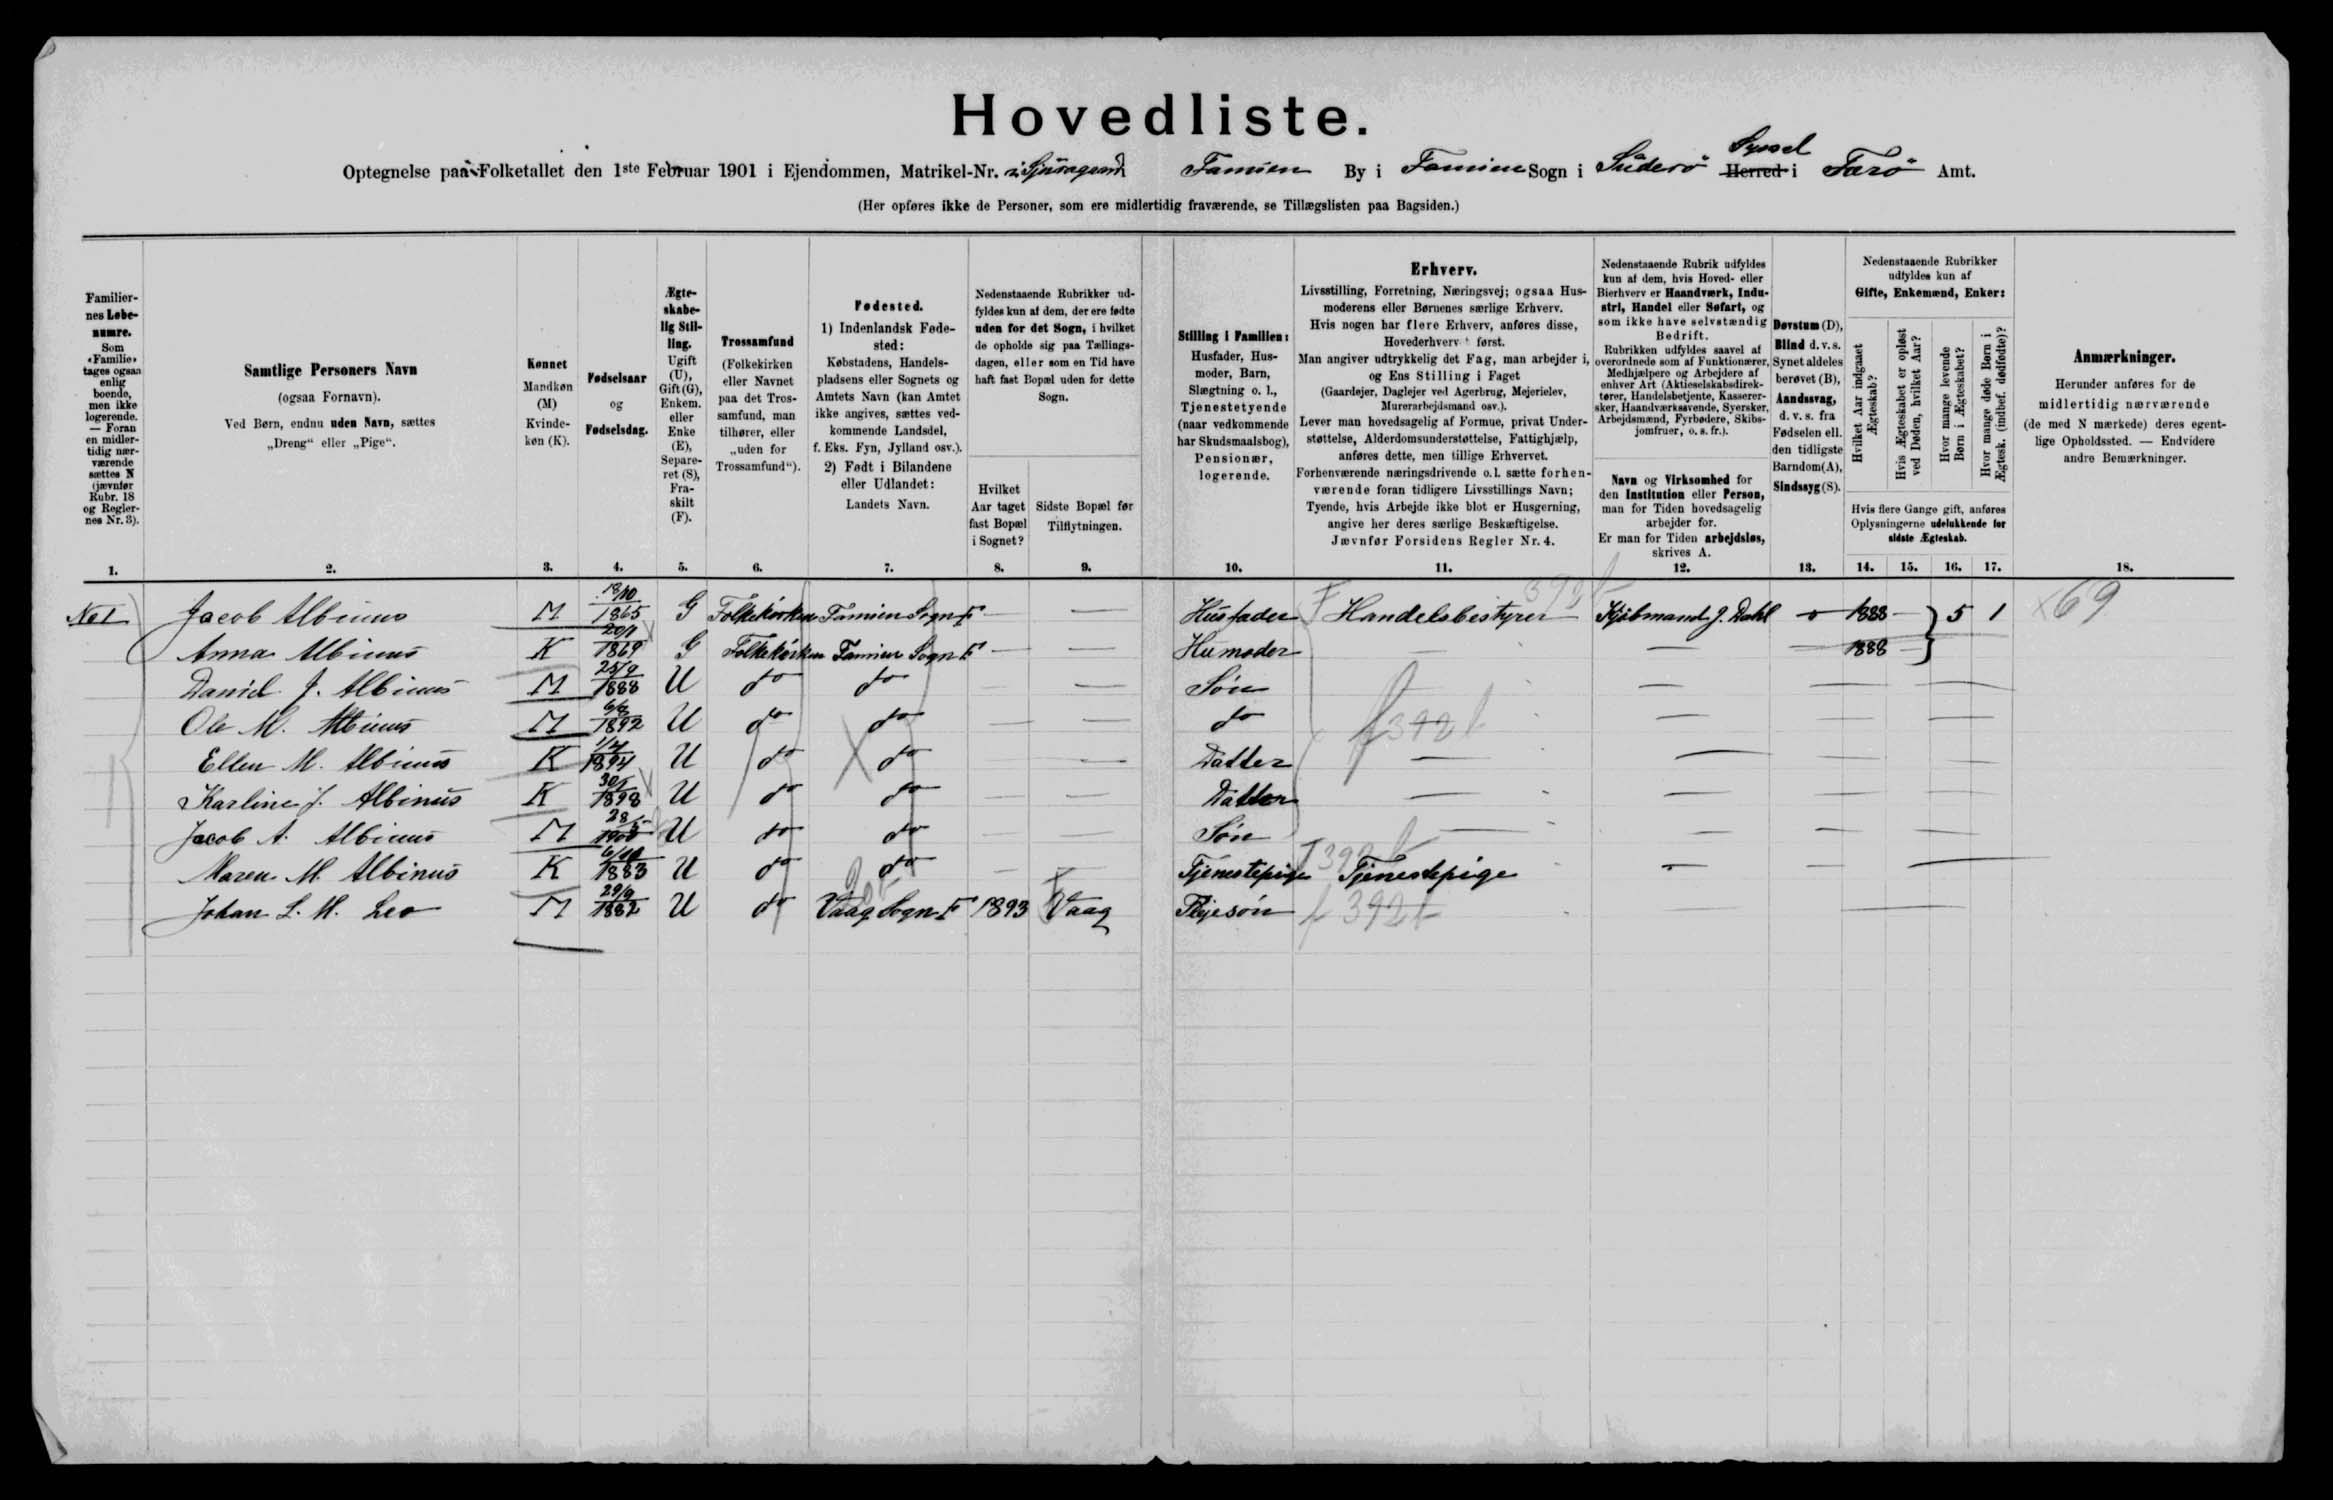 Hovedliste.
Optegnelse paa Folketallet den 1ste Februar 1901 i Ejendommen, Matrikel-Nr. Famien By i Famien Sogn i Süderö Syssel Herred i Farö Amt.
(Her opføres ikke de Personer, som ere midlertidig fraværende, se Tillægslisten paa Bagsiden.)
Familier-
nes Løbe-
numre.
Som
«Familie»
tages ogsaa
enlig
boende,
men ikke
logerende.
— Foran
en midler-
tidig nær-
værende
sættes N
(jævnfør
Rubr. 18
og Regler-
nes Nr. 3).
1.
Samtlige Personers Navn
(ogsaa Fornavn).
Ved Børn, endnu uden Navn, sættes
„Dreng“ eller „Pige“.
2.
Kønnet
Mandkøn
(M)
Kvinde-
køn (K).
3.
Fødselsaar
og
Fødselsdag.
4.
Ægte-
skabe-
lig Stil-
ling.
Ugift
(U),
Gift (G),
Enkem.
eller
Enke
(E),
Separe-
ret (S),
Fra-
skilt
(F).
5.
Trossamfund
(Folkekirken
eller Navnet
paa det Tros-
samfund, man
tilhører, eller
„uden for
Trossamfund“).
6.
Fødested.
1) IndenlandskFøde-
sted:
Købstadens, Handels-
pladsens eller Sognets og
Amtets Navn (kan Amtet
ikke angives, sættes ved-
kommende Landsdel,
f. Eks. Fyn, Jylland osv.).
2) Født i Bilandene
eller Udlandet:
Landets Navn.
7.
Nedenstaaende Rubrikker ud-
fyldes kun af dem, der ere fødte
uden for det Sogn, i hvilket
de opholde sig paa Tællings-
dagen, eller som en Tid have
haft fast Bopæl uden for dette
Sogn.
Hvilket
Aar taget
fast Bopæl
i Sognet?
8.
Sidste Bopæl før
Tilflytningen.
9.
Stilling i Familien:
Husfader, Hus-
moder, Barn,
Slægtning o. l.,
Tjenestetyende
(naar vedkommende
har Skudsmaalsbog),
Pensionær,
logerende.
10.
Erhverv.
Livsstilling, Forretning, Næringsvej; ogsaa Hus-
moderens eller Børnenes særlige Erhverv.
Hvis nogen har flere Erhverv, anføres disse,
Hovederhverv først.
Man angiver udtrykkelig det Fag, man arbejder i,
og Ens Stilling i Faget
(Gaardejer, Daglejer ved Agerbrug, Mejerielev,
Murerarbejdsmand osv.).
Lever man hovedsagelig af Formue, privat Under-
støttelse, Alderdomsunderstøttelse, Fattighjælp,
anføres dette, men tillige Erhvervet.
Forhenværende næringsdrivende o. l. sætte forhen-
værende foran tidligere Livsstillings Navn;
Tyende, hvis Arbejde ikke blot er Husgerning,
angive her deres særlige Beskæftigelse.
Jævnfør Forsidens Regler Nr. 4.
11.
Nedenstaaende Rubrik udfyldes
kun af dem, hvis Hoved- eller
Bierhverv er Haandværk, Indu-
stri, Handel eller Søfart, og
som ikke have selvstændig
Bedrift.
Rubrikken udfyldes saavel af
overordnede som af Funktionærer,
Medhjælpere og Arbejdere af
enhver Art (Aktieselskabsdirek-
tører, Handelsbetjente, Kasserer-
sker, Haandværkssvende, Syersker,
Arbejdsmænd, Fyrbødere, Skibs-
jomfruer, o. s. fr.).
Navn og Virksomhed for
den Institution eller Person,
man for Tiden hovedsagelig
arbejder for.
Er man for Tiden arbejdsløs,
skrives A.
12.
Døvstum (D),
Blind d. v. s.
Synet aldeles
berøvet (B),
Aandssvag,
d. v. s. fra
Fødselen ell.
den tidligste
Barndom (A),
Sindssyg (S).
13.
Nedenstaaende Rubrikker
udfyldes kun af
Gifte, Enkemænd, Enker:
Hvilket Aar indgaaet
Ægteskab?
Hvis Ægteskabet er opløst
ved Døden, hvilket Aar?
Hvor mange levende
Børn i Ægteskabet?
Hvor mange døde Børn i
Ægtesk. (indbef. dødfødte)?
Hvis flere Gange gift, anføres
Oplysningerne udelukkende for
sidste Ægteskab.
14. 15. 16. 17.
Anmærkninger.
Herunder anføres for de
midlertidig nærværende
(de med N mærkede) deres egent-
lige Opholdssted. — Endvidere
andre Bemærkninger.
18.
No 1 Jacob Albinus M 18/10 1865 G Folkekirken Famien Sogn F — — Husfader Handelsbestyrer 392 t Kjöbmand J. Dahl 1888 — 5 1 x 69
Anna Albinus K 20/1 1869 G Folkekirken Famien Sogn F — — Humoder — — — 1888 —
Daniel J. Albinus M 25/9 1888 U do do — — Sön — — —
Ole M. Albinus M 6/8 1892 U do do — — do f 392 t — — —
Ellen M. Albinus K 1/4 1894 U do do — — Datter — — — —
Karline J. Albinus K 30/1 1898 U do do — — Datter — — — —
Jacob A. Albinus M 28/5 1900 U do do — — Sön — — — —
Maren M. Albinus K 6/10 1883 U do do — — Tjenestepige T 392 t Tjenestepige — —
Johan L. M. Leo M 29/9 1882 U do Vaag Sogn F 1893 Vaag Plejesön f 392 t — —